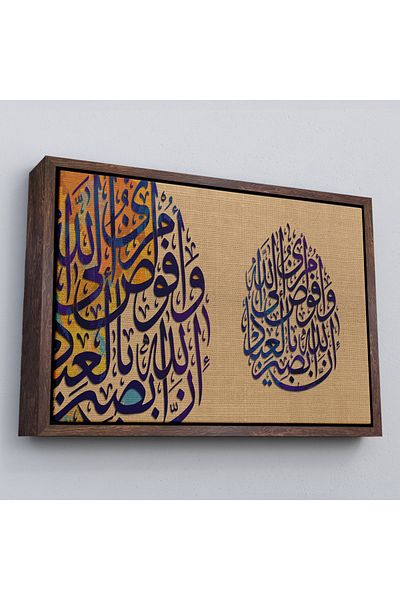 وأفوض أمري إلى الله
إن الله بصير بالعباد
وأفوض أمري إلى الله
إن الله بصير بالعباد